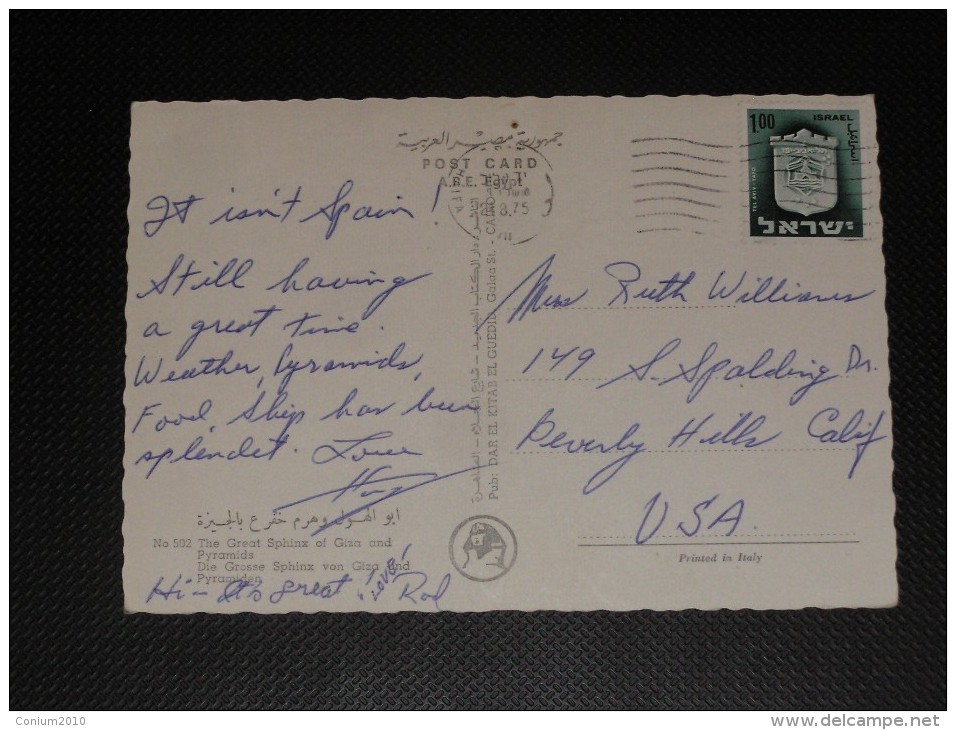 جمهورية مصر العربية
POST CARD
A.R.E. EGYPT
8.75
VII
1.00
ISRAEL
اسرائيل
TEL AVIV-YAFO
ישראל
It isn't Spain!
Still having
a great time.
Weather, Pyramids,
Food, Ship has been
splendet. Love
Ruth Williams
149 S. Spalding Dr.
Beverly Hills Calif
USA.
Pub: DAR EL KITAB EL GUEDID, Galaa St. - CAIRO
ابو الهول وهرم خفرع بالجيزة
No 502 The Great Sphinx of Giza and
Pyramids
Die Grosse Sphinx von Giza und
Pyramiden
Hi - It's great! Love! Rod
Printed in Italy
Conium2010
www.delcampe.net